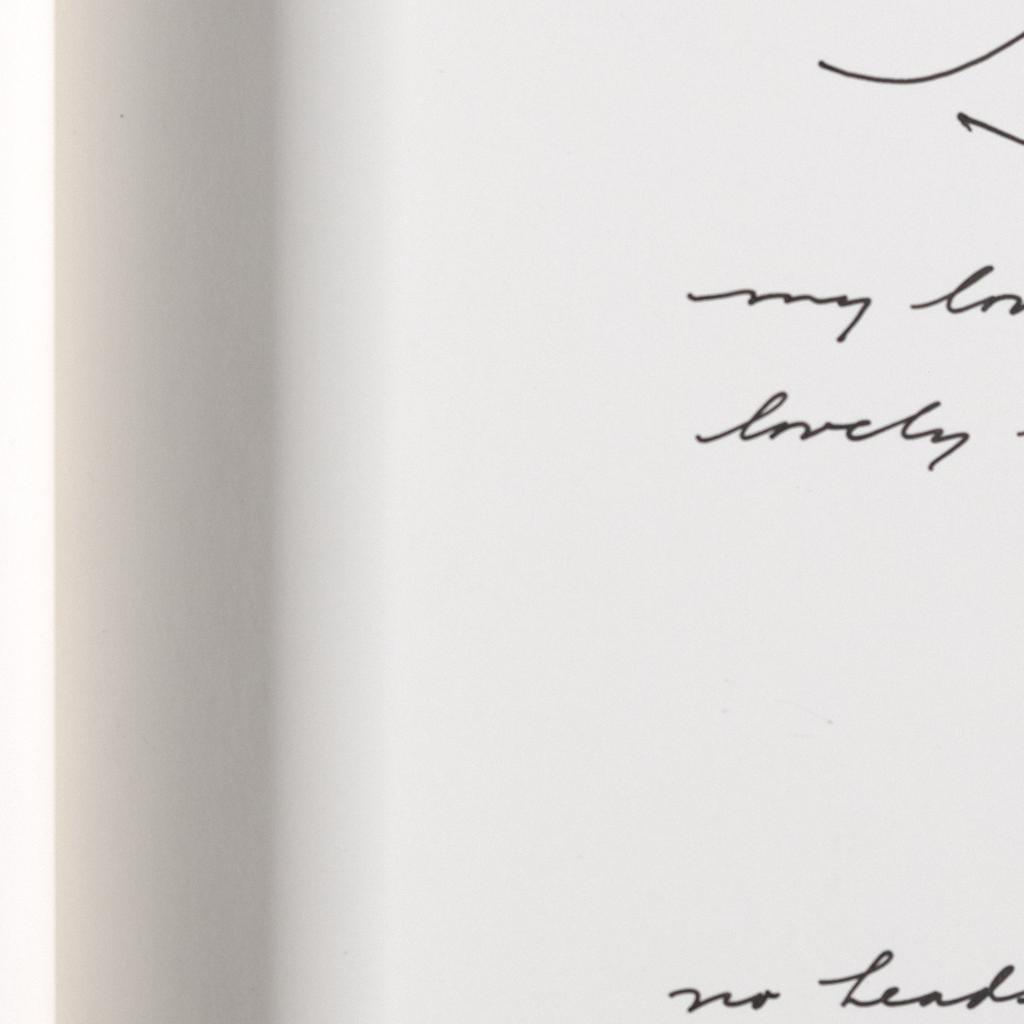 my
lovely
no heads